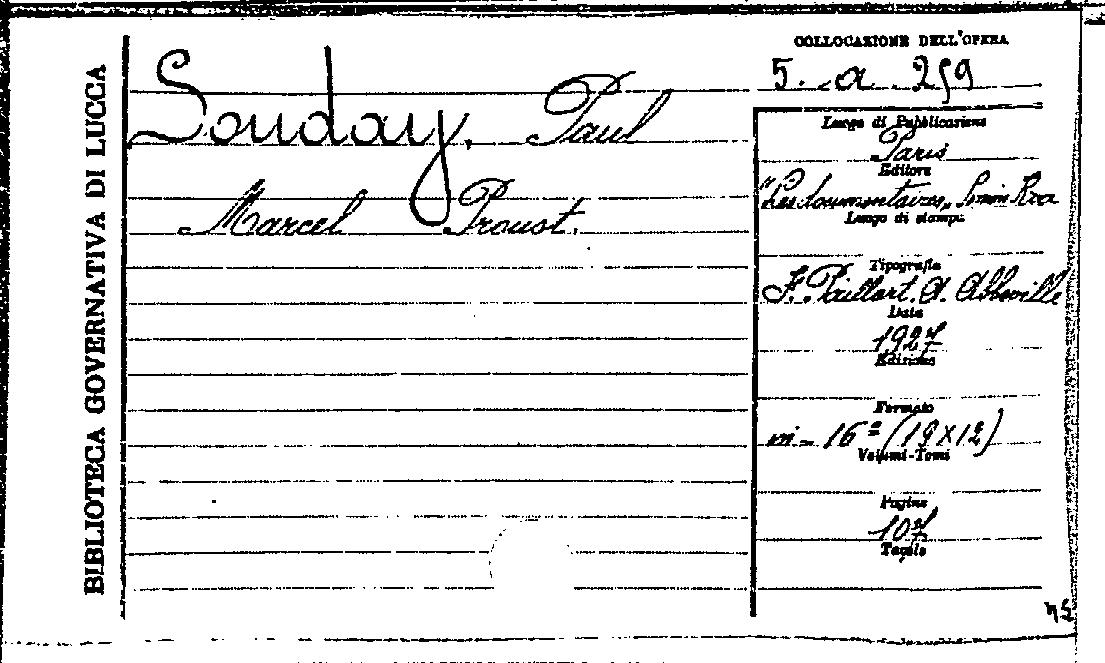 BIBLIOTECA GOVERNATIVA DI LUCCA
Souday, Paul
Marcel Proust.
COLLOCAZIONE DELL'OPERA
5. a. 259
Luogo di Pubblicazione
Paris
Editore
"Les documentaires"
Luogo di stampa
Tipografia
F. Paillart. A. Abbeville
Data
1927
Edizione
Formato
in-16º (19x12)
Volumi-Tomi
Pagine
107
Tavole